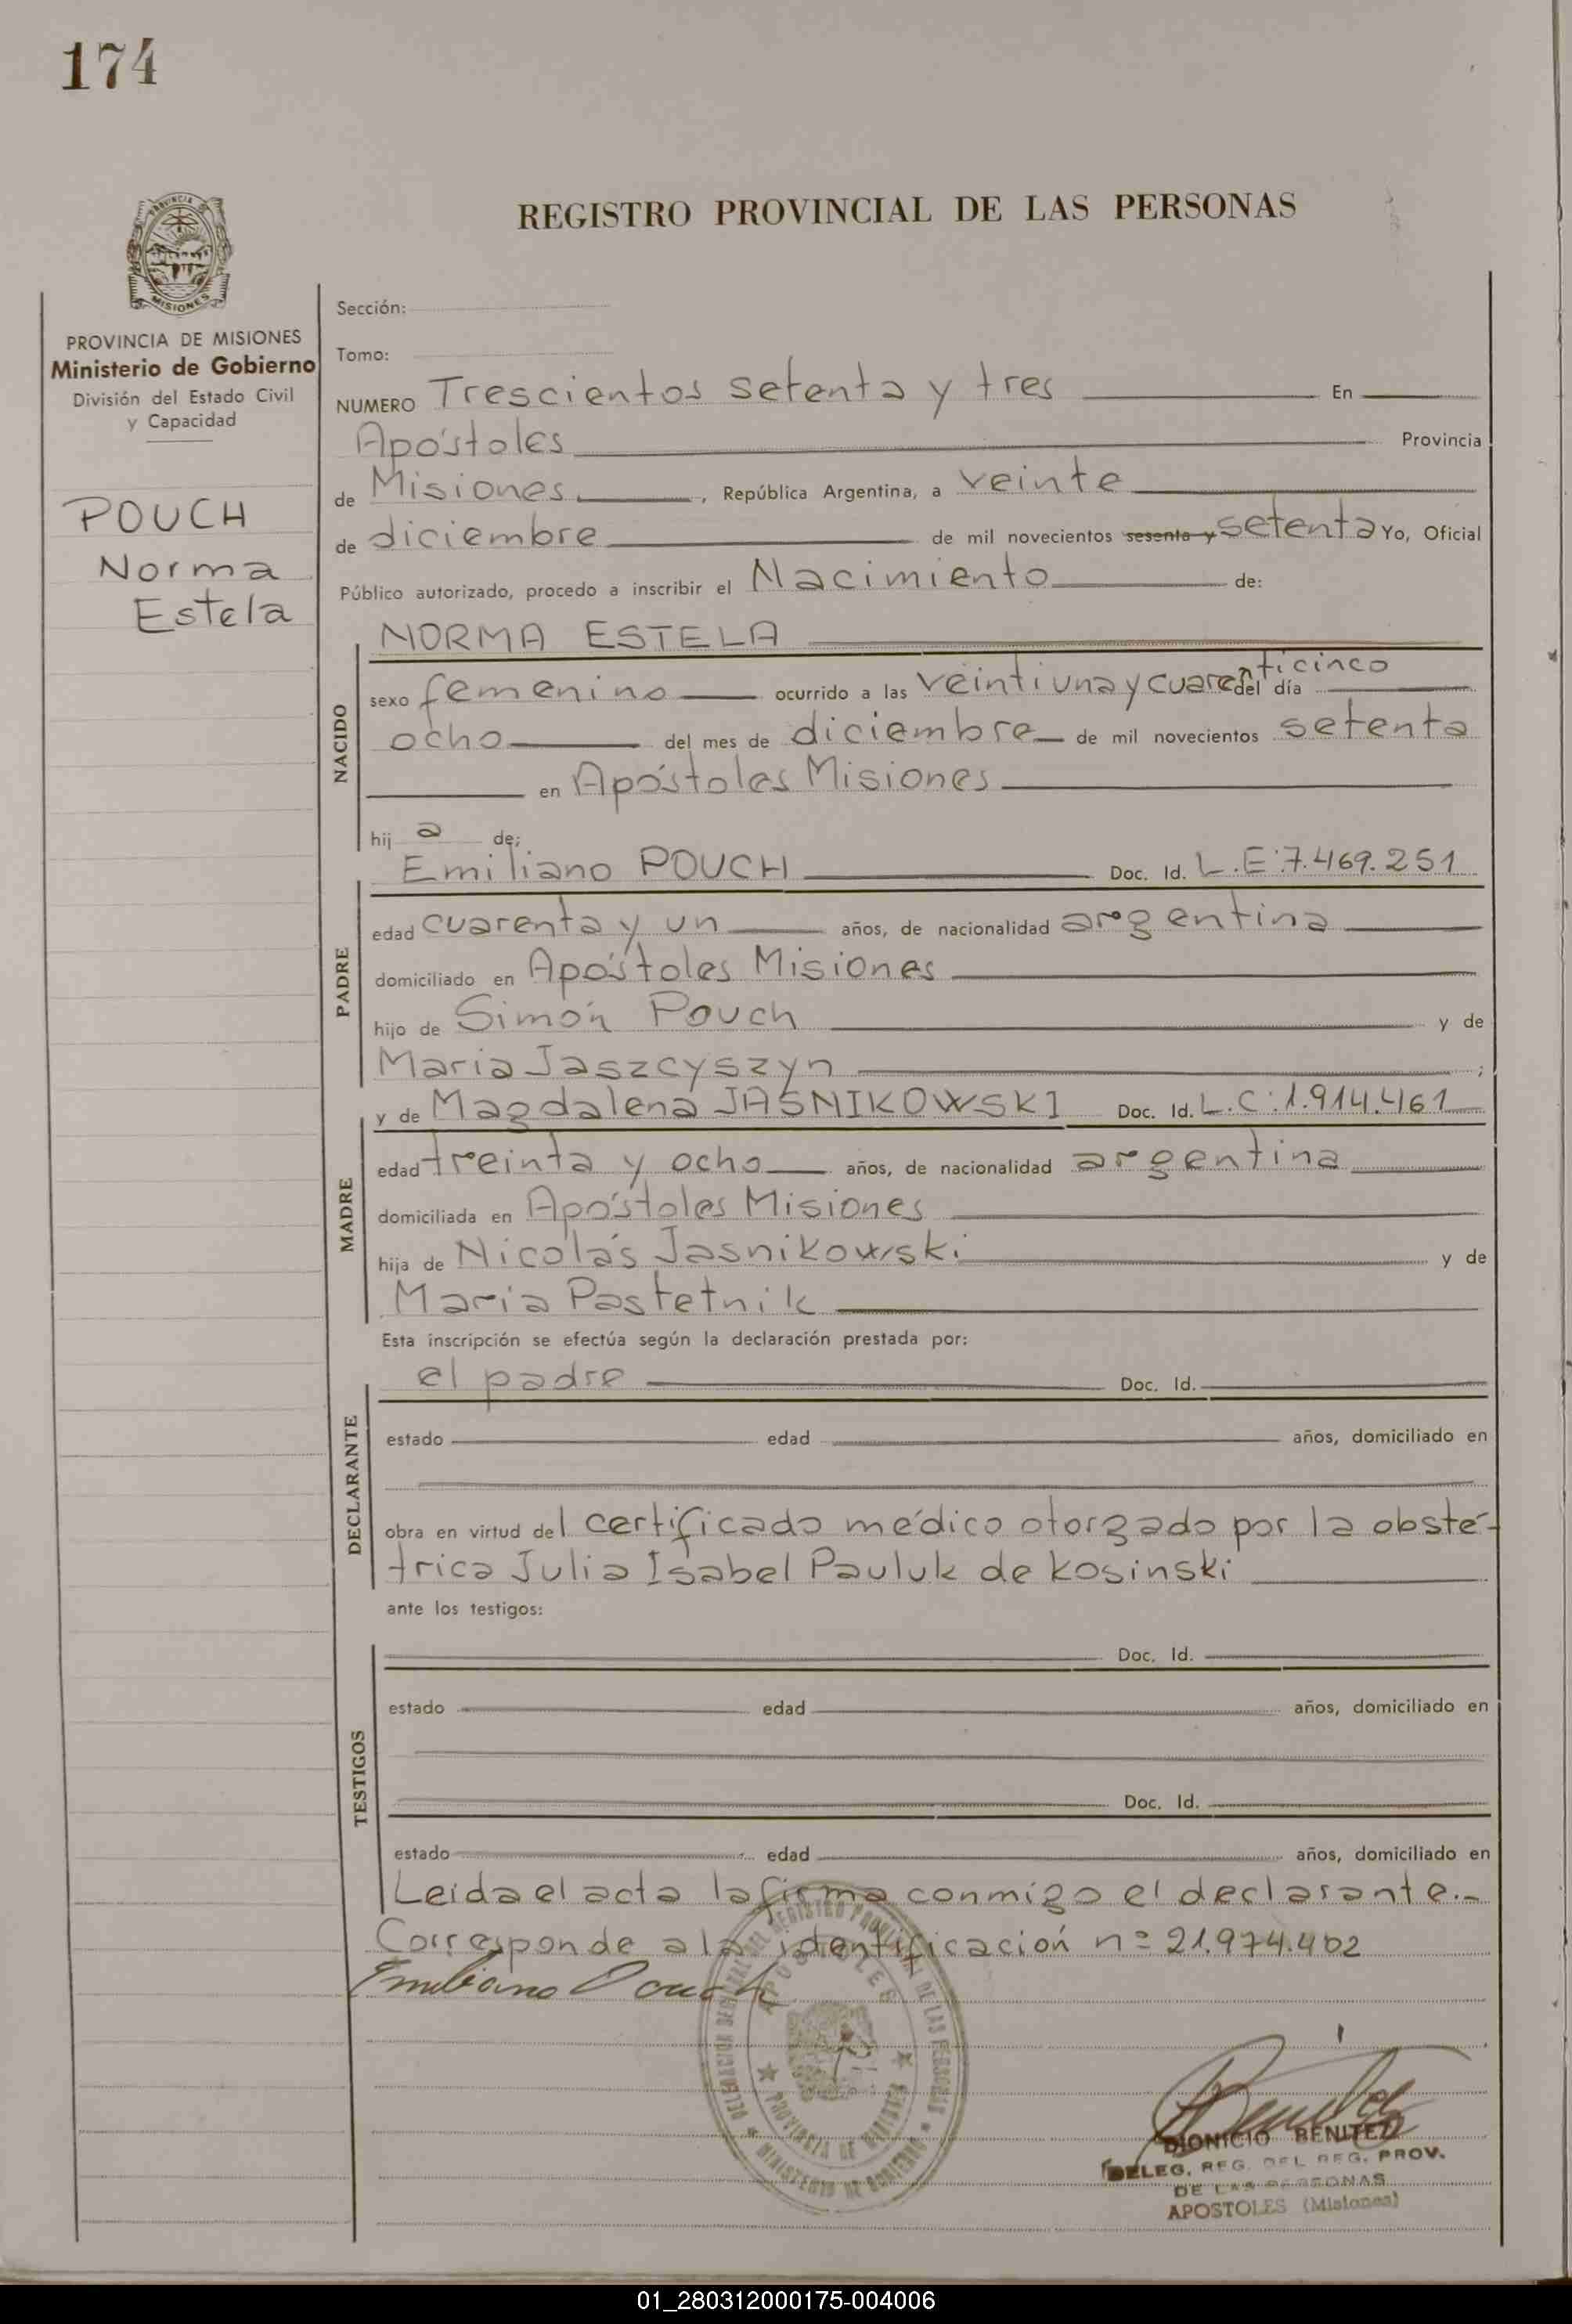 174
REGISTRO PROVINCIAL DE LAS PERSONAS
PROVINCIA
MISIONES
PROVINCIA DE MISIONES
Ministerio de Gobierno
División del Estado Civil
y Capacidad
POUCH
Norma
Estela
Sección:
Tomo:
NUMERO Trescientos setenta y tres En
Apóstoles Provincia
de Misiones, República Argentina, a veinte
de diciembre de mil novecientos sesenta y setenta Yo, Oficial
Público autorizado, procedo a inscribir el Nacimiento de:
NACIDO
NORMA ESTELA
sexo femenino ocurrido a las veintiuna y cuarenticinco del día
ocho del mes de diciembre de mil novecientos setenta
en Apóstoles Misiones
hij a de;
PADRE
Emiliano POUCH Doc. Id. L.E:7.469.251
edad cuarenta y un años, de nacionalidad argentina
domiciliado en Apóstoles Misiones
hijo de Simón Pouch y de
Maria Jaszcyszyn ;
MADRE
y de Magdalena JASNIKOWSKI Doc. Id. L.C:1.914.461
edad treinta y ocho años, de nacionalidad argentina
domiciliada en Apóstoles Misiones
hija de Nicolás Jasnikowski y de
Maria Pastetnik
Esta inscripción se efectúa según la declaración prestada por:
DECLARANTE
el padre Doc. Id.
estado edad años, domiciliado en
obra en virtud del certificado médico otorgado por la obsté-
trica Julia Isabel Pauluk de Kosinski
ante los testigos:
TESTIGOS
Doc. Id.
estado edad años, domiciliado en
Doc. Id.
estado edad años, domiciliado en
Leida el acta la firma conmigo el declarante.-
Corresponde a la identificación nº 21.974.402
Emiliano Pouch
DELEGACION REGIONAL DEL REGISTRO PROVINCIAL DE LAS PERSONAS
APOSTOLES
PROVINCIA DE MISIONES
MINISTERIO DE GOBIERNO
DIONICIO BENITEZ
DELEG. REG. DEL REG. PROV.
DE LAS PERSONAS
APOSTOLES (Misiones)
01_280312000175-004006